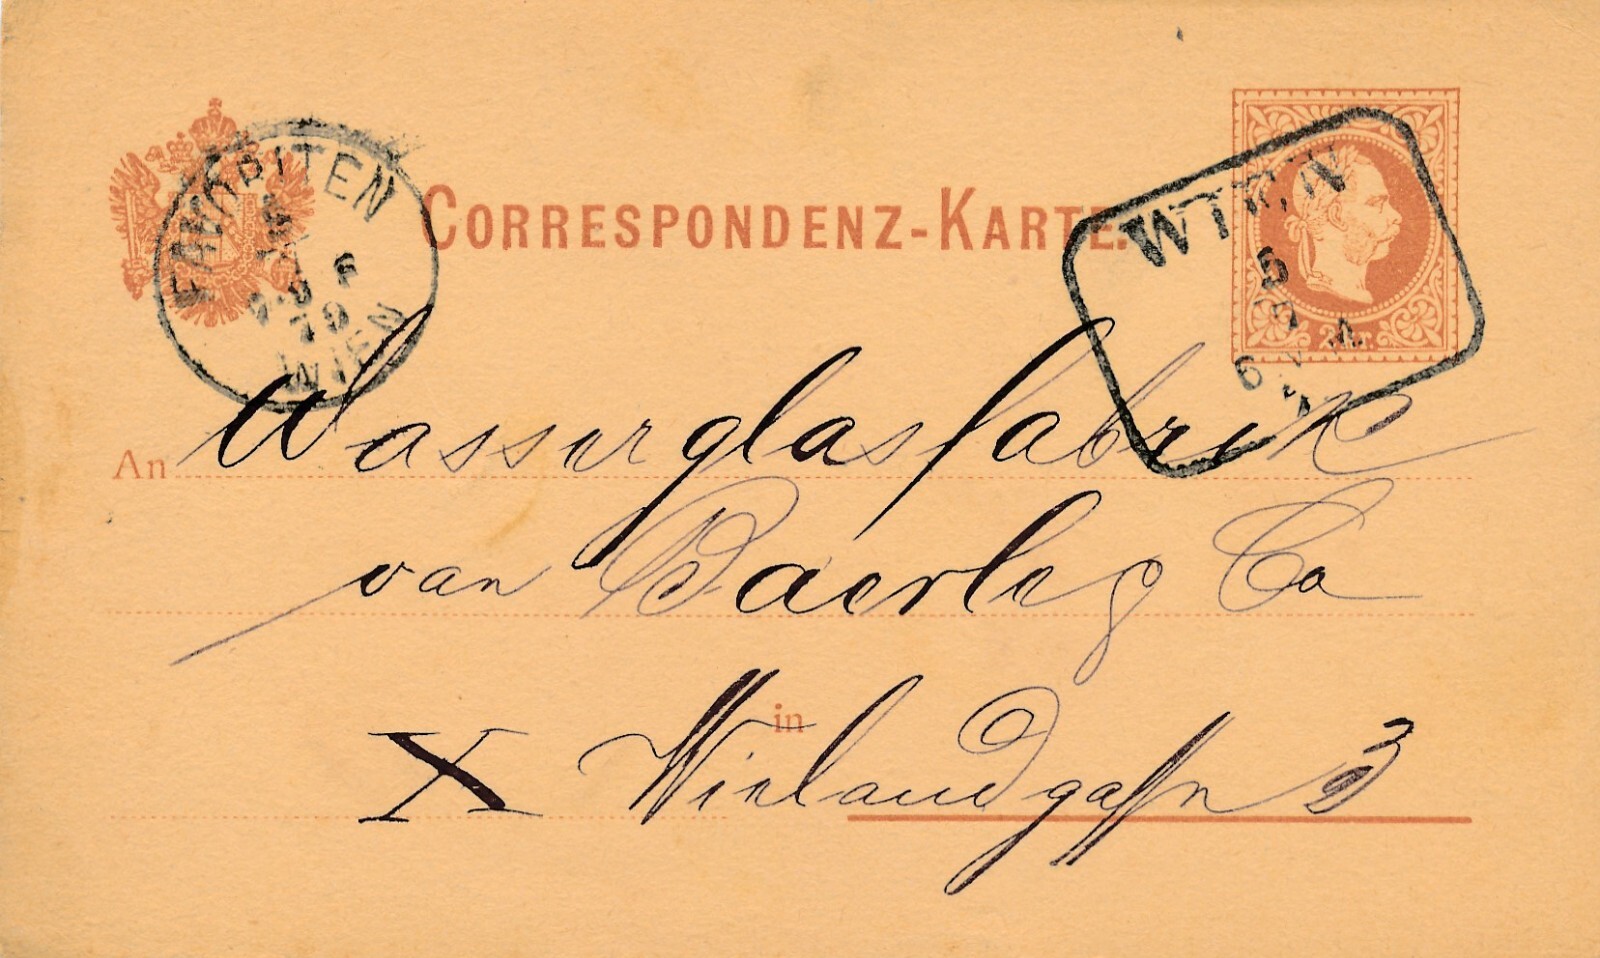 CORRESPONDENZ-KARTE.
FAVORITEN
79
WIEN
WIEN
5
6
2 kr.
An Wasserglasfabrik
van Baerle & Co
in
X Wielandgasse 3